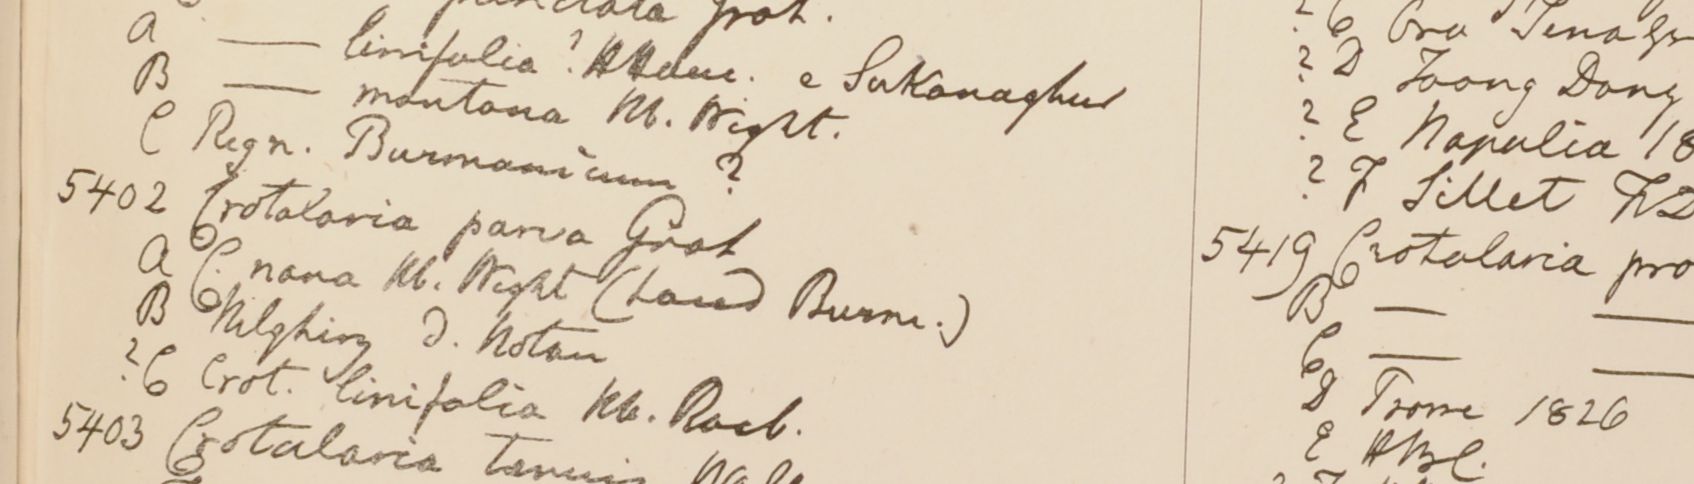 punctata Grah.
A — linifolia? HHeune. e Sukanaghur
B — montana Hb. Wight.
C Regn. Burmanicum ?
5402 Crotalaria parva Grah
A C. nana Hb. Wight (haud Burm.)
B Nilghiry D. Noton
? C Crot. linifolia Hb. Roxb.
5403 Crotalaria tenuis Wall
? C Ora Tenass
? D Toong Dong
? E Napalia 18
? F Sillet FD
5419 Crotalaria pro
B — —
C — —
D Prome 1826
E HBC.